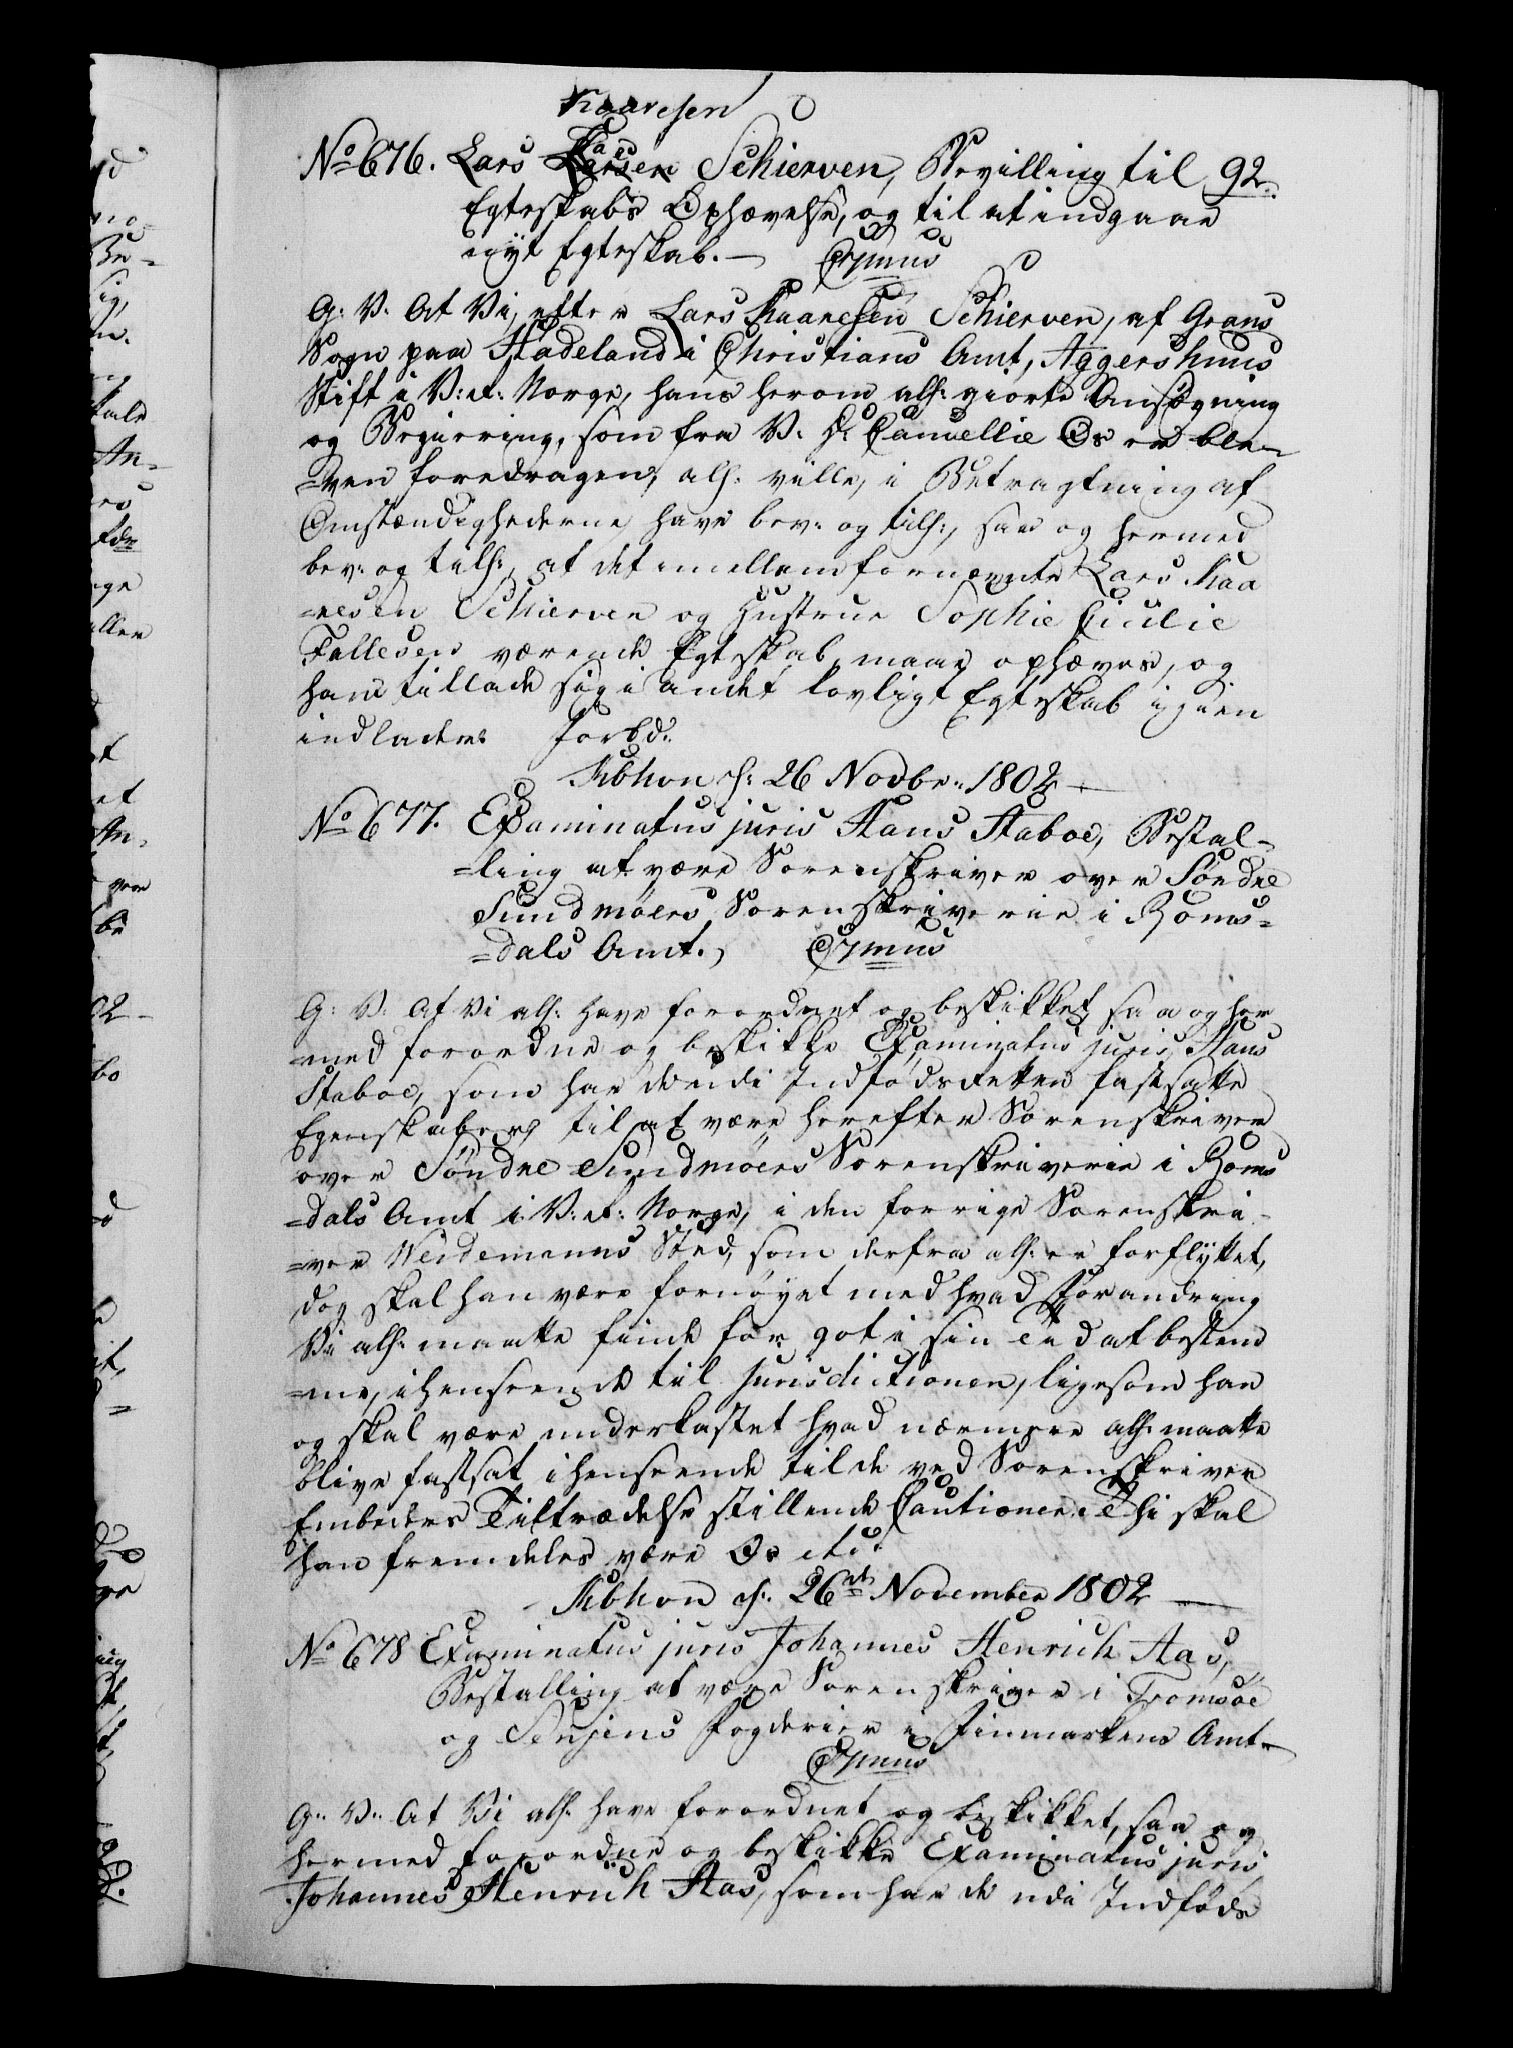 Kaaresen
No 676. Lars Larsen Schierven, Bevilling til 92.
Egteskabs Ophævelse, og til at indgaae
nyt Egteskab. — Grmus
G: V. At Vi, efter Lars Kaaresen Schierven, af Grans
Sogn paa Hadeland i Christians Amt, Aggershuus
Stift i V: R: Norge, hans herom allr: giorte Ansøgning
og Begiering, som fra V. D: Cancellie Os er ble-
=ven foredragen, allr: ville, i Betragtning af
Omstændighederne, have bev: og till:, saa og hermed
bev: og till:, at det imellem fornævnte Lars Kaa
=resen Schierven og Hustrue Sophie Cicilie
Fallesen værende Egteskab, maae ophæves, og
han tillade sig i andet lovligt Egteskab igien
indlade. Forbd:
Kbhvn d: 26 Novbr: 1802 —
No 677. Examinatus juris Hans Staboe, Bestal-
=ling at være Sorenskriver over Söndre
Sundmöers Sorenskriverie i Roms-
=dals Amt., Grmus
G: V. At Vi allr: have forordnet og beskikket, saa og her
=med forordne og beskikke Examinatus juris Hans
Staboe, som har de udi Indfødsretten fastsatte
Egenskaber, til at være herefter Sorenskriver
over Söndre Sundmöers Sorenskriverie i Roms
=dals Amt i V: R: Norge, i den forrige Sorenskri-
=ver Weidemanns Sted, som derfra allr: er forflyttet,
dog skal han være fornøyet med hvad Forandring
Vi allr: maatte finde for got i sin Tid at bestem
=me, i henseende til Jurisdictionen, ligesom han
og skal være underkastet hvad nærmere allr: maatte
blive fastsat i henseende til de ved Sorenskriver
Embeders Tiltrædelse stillende Cautioner. Thi skal
han fremdeles være Os etc.
Kbhvn d: 26de November 1802 —
No 678 Examinatus juris Johannes Henrich Aas,
Bestalling at være Sorenskriver i Tromsöe
og Senjens Fogderier i Finmarkens Amt —
Grmus
G: V: At Vi allr: have forordnet og beskikket, saa og
hermed forordne og beskikke Examinatus juris
Johannes Henrich Aas, som har de udi Indføds